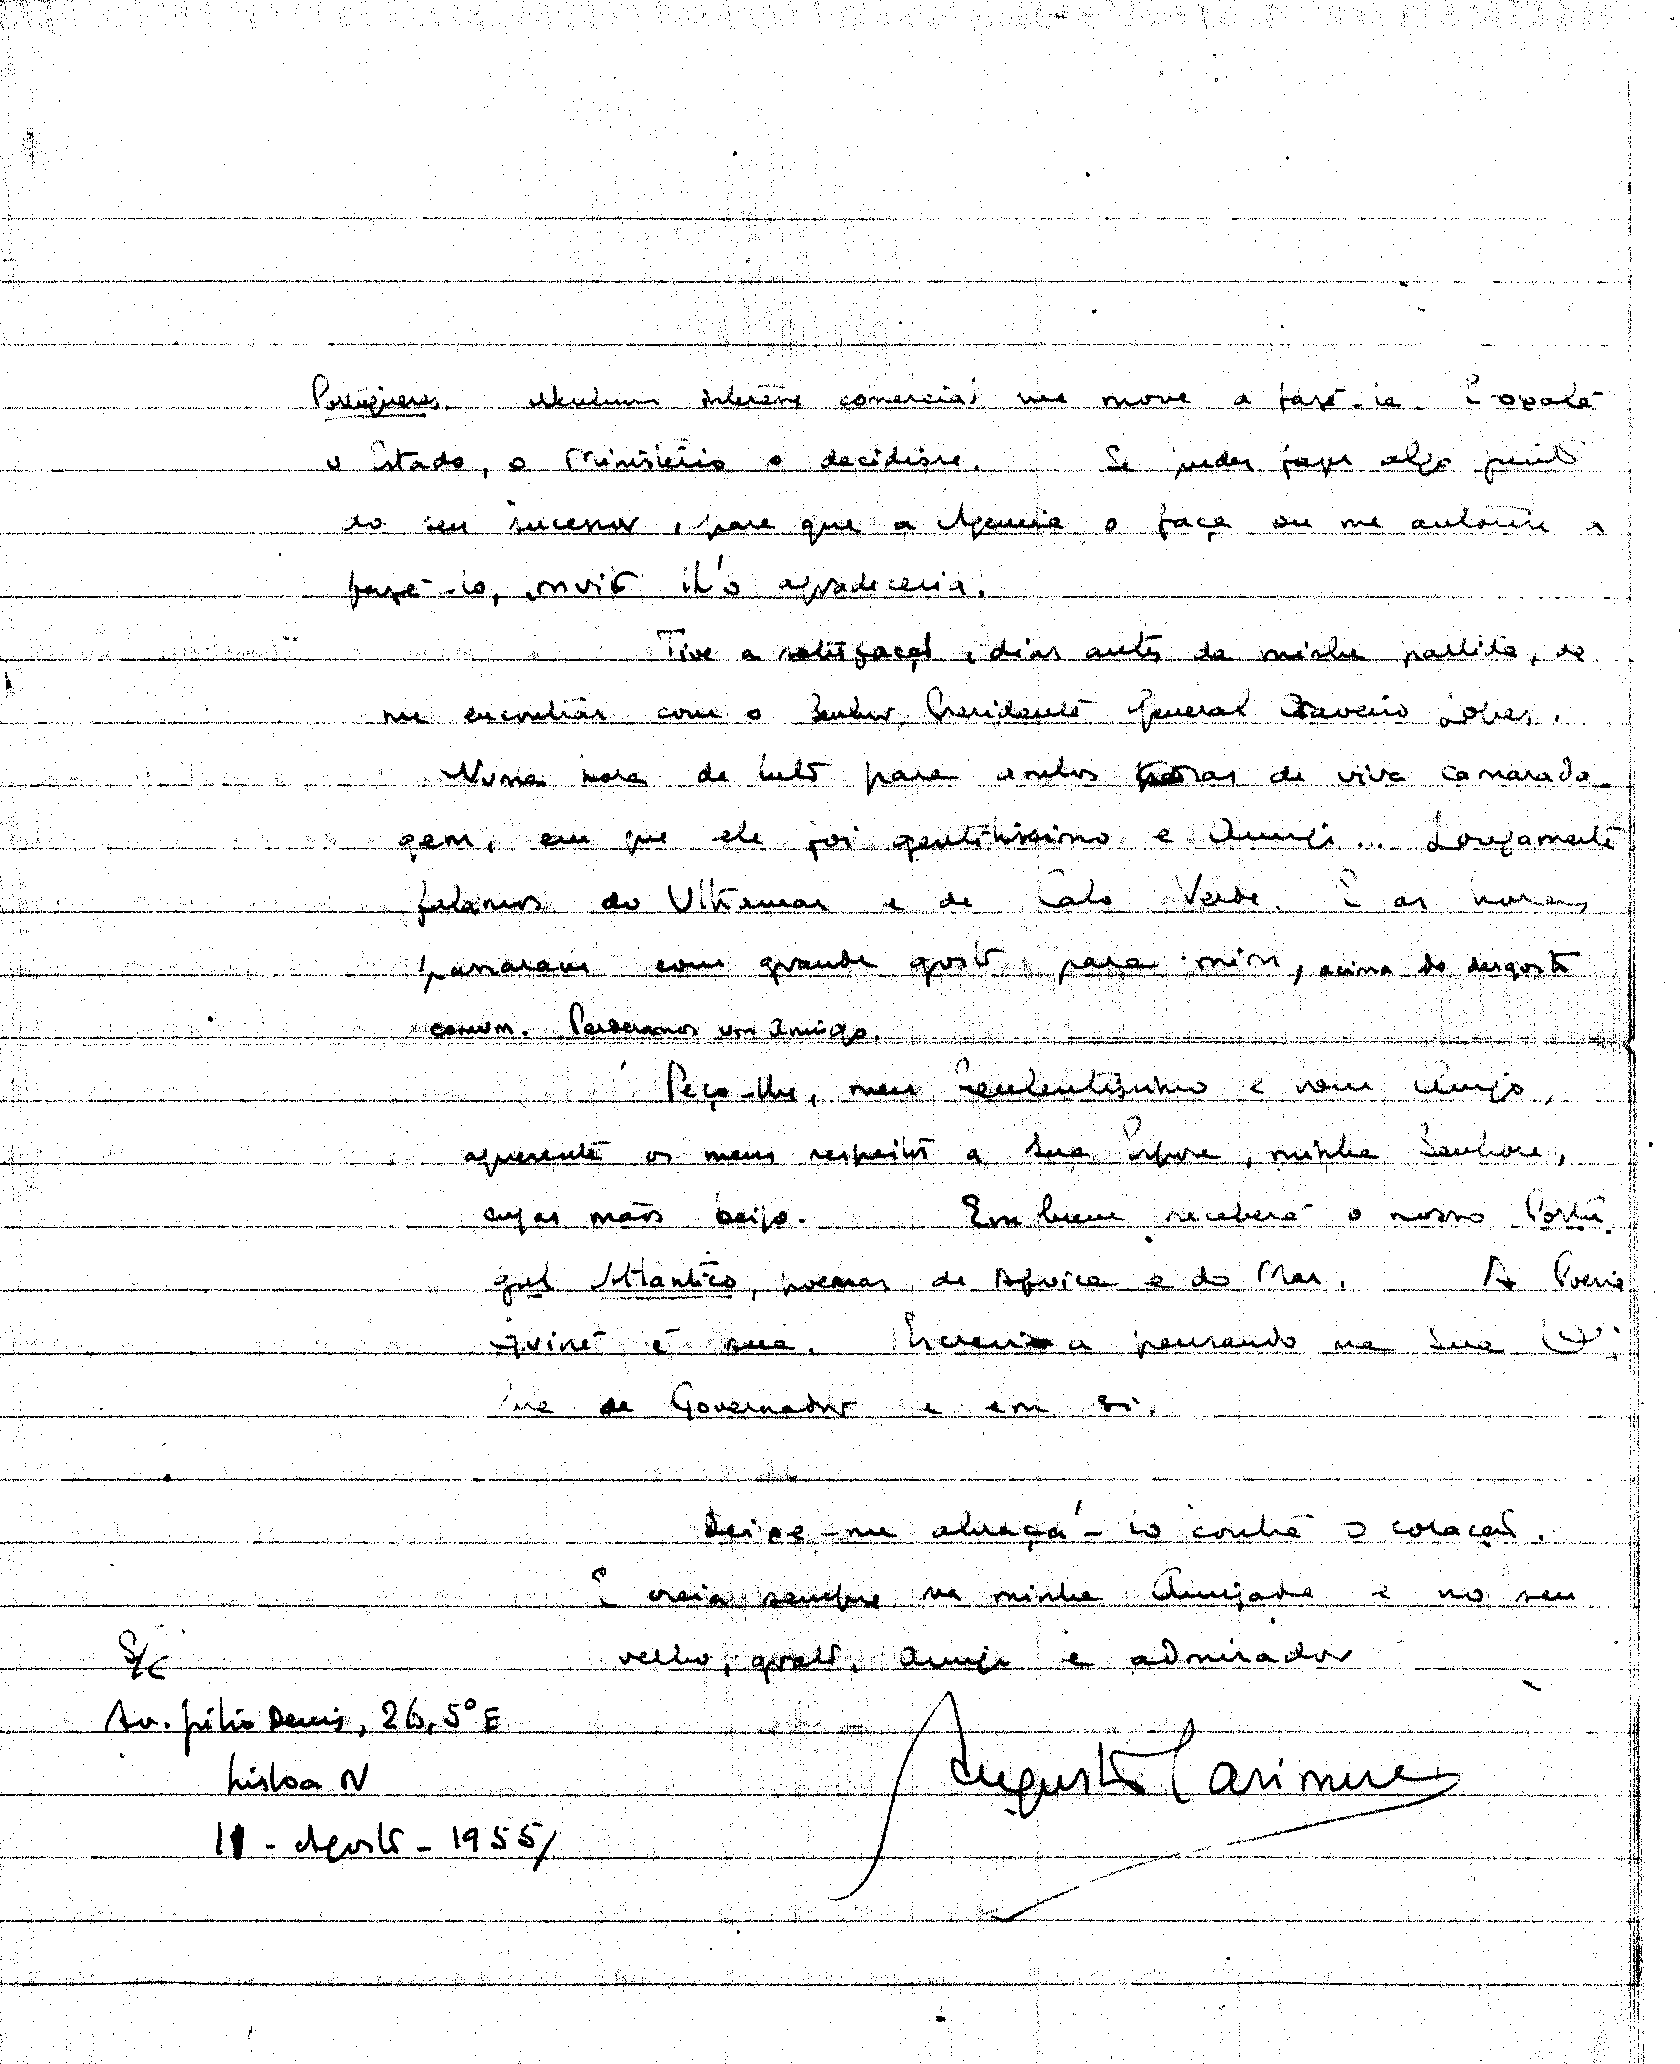 Portugueses. Nenhum interesse comercial me move a fazê-la. E oxalá
o Estado, o Ministério o decidisse. Se puder fazer algo junto
do seu sucessor, para que a Agencia o faça ou me autorize a
fazê-lo, muito lh'o agradeceria.
Tive a satisfação, dias antes da minha partida, de
me encontrar com o Senhor Presidente General Craveiro Lopes.
Numa hora de luto para ambos horas de viva camarada-
gem, em que ele foi gentilissimo e Amigo... Longamente
falamos do Ultramar e de Cabo Verde. E as horas
passaram com grande gosto para mim, acima do desgosto
comum. Perderamos um Amigo.
Peço-lhe, meu Excelentissimo e bom Amigo,
apresente os meus respeitos a Sua Esposa, minha Senhora,
cujas mãos beijo. Em breve receberá o nosso Portu-
gal Atlantico, poemas de Africa e do Mar. A Poesia
é sua. Escrevi-a pensando na sua
de Governador e em si.
Deixe-me abraçá-lo contra o coração.
E creia sempre na minha Amizade e no seu
velho, grato, Amigo e admirador
S/C
Av. Júlio Denis, 26, 5º E
Augusto Casimiro
Lisboa N
11 - Agosto - 1955/